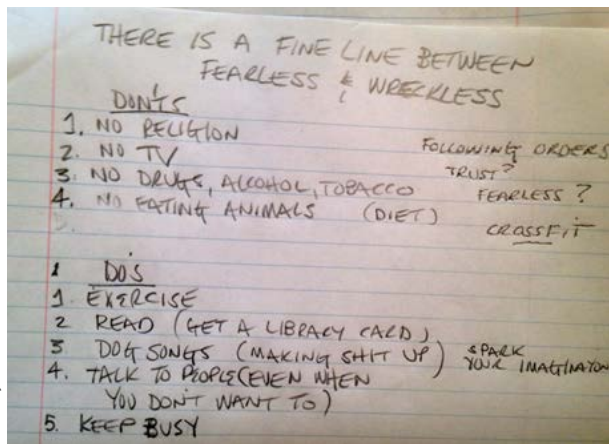 THERE IS A FINE LINE BETWEEN
FEARLESS & WRECKLESS
DON'TS
1. NO RELIGION
2. NO TV
3. NO DRUGS, ALCOHOL, TOBACCO
4. NO EATING ANIMALS (DIET)
FOLLOWING ORDERS
TRUST?
FEARLESS?
CROSSFIT
DO'S
1. EXERCISE
2 READ (GET A LIBRARY CARD)
3 DOG SONGS (MAKING SHIT UP) SPARK
YOUR IMAGINATION
4. TALK TO PEOPLE (EVEN WHEN
YOU DON'T WANT TO)
5. KEEP BUSY